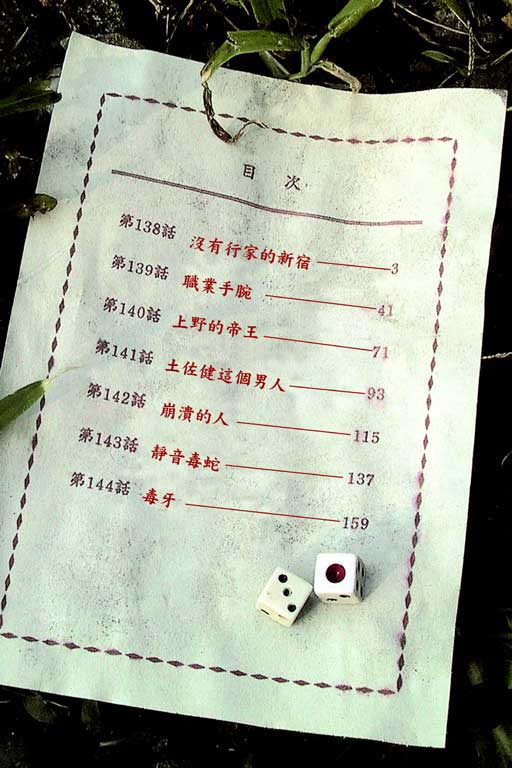 目 次
第138話 沒有行家的新宿 3
第139話 職業手腕 41
第140話 上野的帝王 71
第141話 土佐健這個男人 93
第142話 崩潰的人 115
第143話 靜音毒蛇 137
第144話 毒牙 159